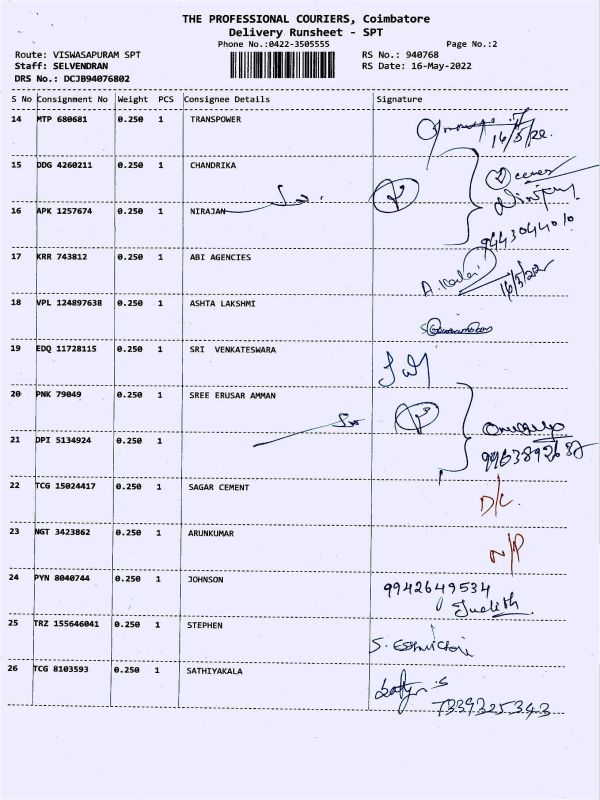 THE PROFESSIONAL COURIERS, Coimbatore
Delivery Runsheet - SPT
Phone No.:0422-3505555 Page No.:2
Route: VISWASAPURAM SPT RS No.: 940768
Staff: SELVENDRAN RS Date: 16-May-2022
DRS No.: DCJB94076802
S No Consignment No Weight PCS Consignee Details Signature
14 MTP 680681 0.250 1 TRANSPOWER
16/5/22.
15 DDG 4260211 0.250 1 CHANDRIKA
16 APK 1257674 0.250 1 NIRAJAN
9443044010
17 KRR 743812 0.250 1 ABI AGENCIES
16/5/22
18 VPL 124897638 0.250 1 ASHTA LAKSHMI
19 EDQ 11728115 0.250 1 SRI VENKATESWARA
20 PNK 79049 0.250 1 SREE ERUSAR AMMAN
21 DPI 5134924 0.250 1
22 TCG 15024417 0.250 1 SAGAR CEMENT D/L.
23 NGT 3423862 0.250 1 ARUNKUMAR N/P
24 PYN 8040744 0.250 1 JOHNSON 9942649534
Judith.
25 TRZ 155646041 0.250 1 STEPHEN
26 TCG 8103593 0.250 1 SATHIYAKALA
7339325343